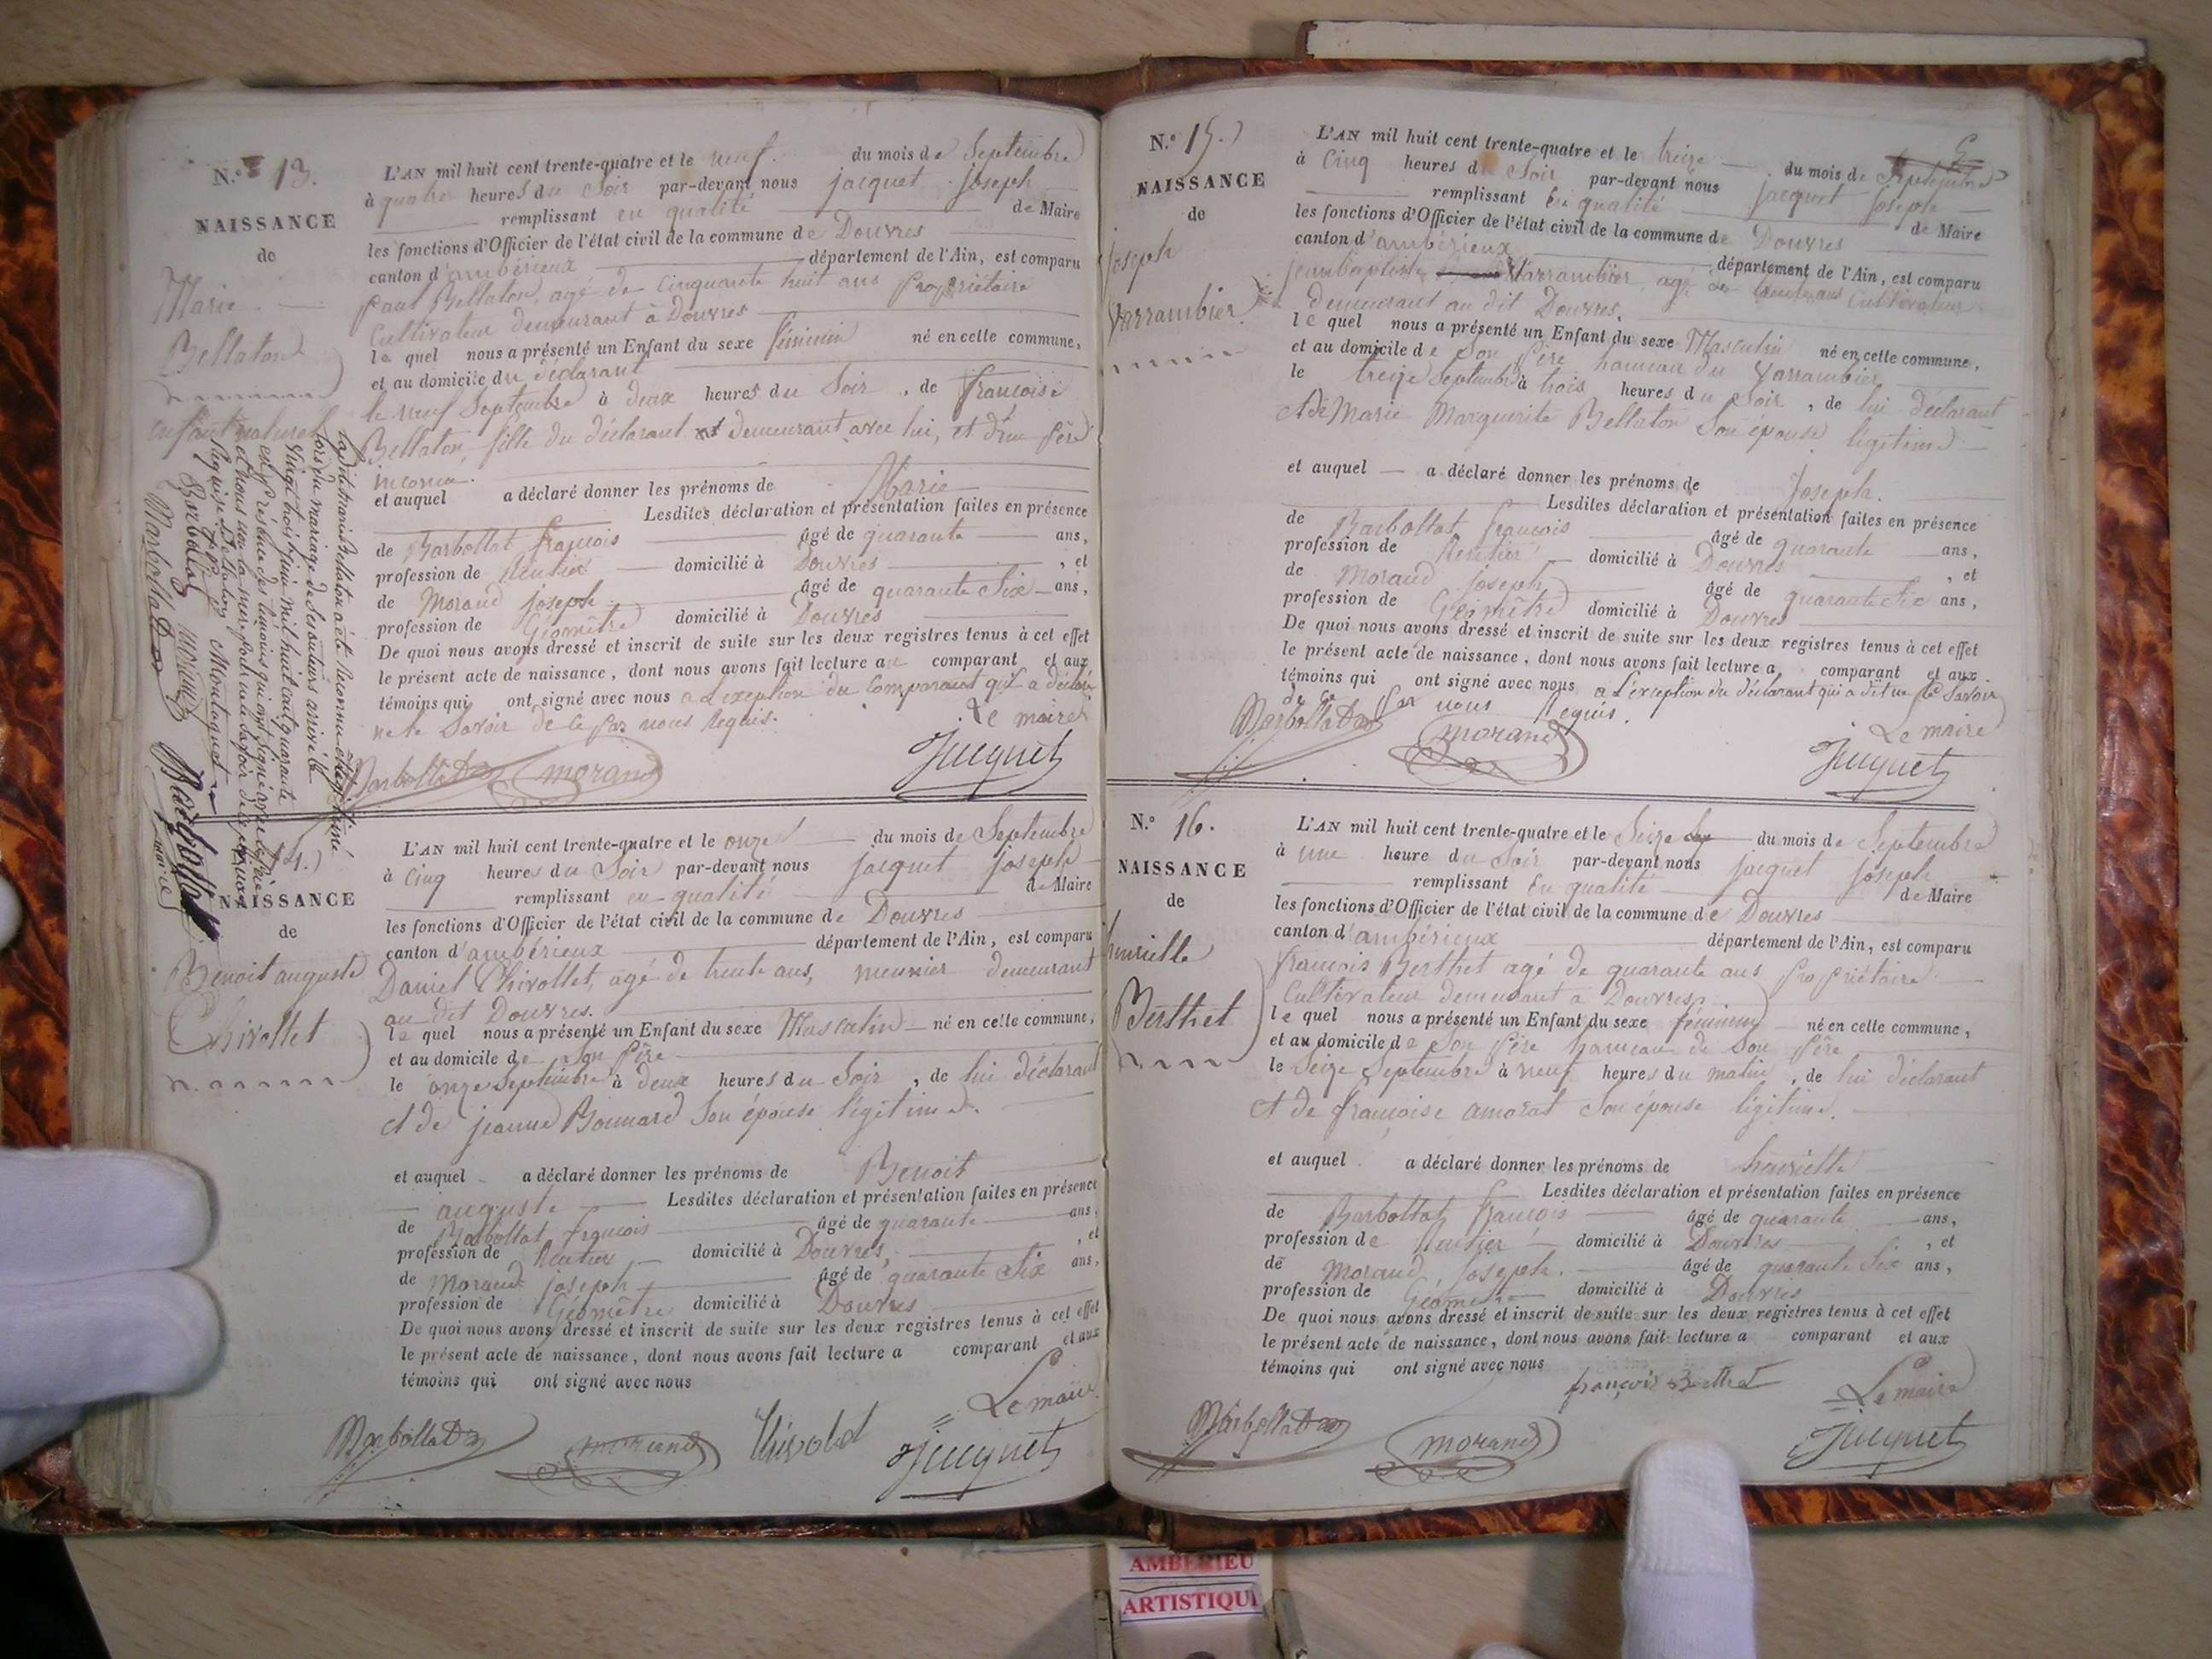 N.° 13.
NAISSANCE
de
Marie
Bellaton
enfant naturel
L'AN mil huit cent trente-quatre et le neuf. du mois de Septembre
à quatre heures du Soir par-devant nous jacquet joseph
remplissant en qualité de Maire
les fonctions d'Officier de l'état civil de la commune de Douvres
canton d'ambérieux département de l'Ain, est comparu
paul Bellaton, agé de Cinquante huit ans Propriétaire
Cultivateur demeurant à Douvres
le quel nous a présenté un Enfant du sexe féminin né en cette commune,
et au domicile du déclarant
le neuf Septembre à deux heures du Soir, de françoise
Bellaton, fille du déclarant et demeurant avec lui, et d'un père
inconnu.
et auquel a déclaré donner les prénoms de Marie
Lesdites déclaration et présentation faites en présence
de Barbollat françois âgé de quarante ans,
profession de Rentier domicilié à Douvres, et
de Morand joseph âgé de quarante Six ans,
profession de Géomètre domicilié à Douvres
De quoi nous avons dressé et inscrit de suite sur les deux registres tenus à cet effet
le présent acte de naissance, dont nous avons fait lecture au comparant et aux
témoins qui ont signé avec nous a L'exception du Comparant qui a déclaré
ne le Savoir de ce par nous Requis.
Le maire
Barbollat morand Jacquet
ladite marie Bellaton a été Reconnue et légitimée
lors du mariage de Ses auteurs arrivé le
vingt trois juin mil huit cent quarante
en présence des témoins qui ont signé avec le père
et nous non la mère pour ne le savoir de ce
Requise
Barbollat morand
Barbollat
maire
14.)
NAISSANCE
de
Benoit auguste
Chivollet
L'AN mil huit cent trente-quatre et le onze du mois de Septembre
à Cinq heures du Soir par-devant nous jacquet joseph
remplissant en qualité de Maire
les fonctions d'Officier de l'état civil de la commune de Douvres
canton d'ambérieux département de l'Ain, est comparu
Daniel Chivollet, agé de trente ans, meunier demeurant
au dit Douvres.
le quel nous a présenté un Enfant du sexe Masculin né en cette commune,
et au domicile de Son père
le onze Septembre à deux heures du Soir, de lui déclarant
et de jeanne Bonnard Son épouse légitime.
et auquel a déclaré donner les prénoms de Benoit
auguste Lesdites déclaration et présentation faites en présence
de Barbollat françois âgé de quarante ans,
profession de Rentier domicilié à Douvres, et
de Morand joseph âgé de quarante Six ans,
profession de Géomètre domicilié à Douvres
De quoi nous avons dressé et inscrit de suite sur les deux registres tenus à cet effet
le présent acte de naissance, dont nous avons fait lecture a comparant et aux
témoins qui ont signé avec nous
Le maire
Barbollat morand Chivolet Jacquet
N.° 15.)
NAISSANCE
de
joseph
Varrambier
L'AN mil huit cent trente-quatre et le treize du mois de Septembre
à Cinq heures du Soir par-devant nous jacquet joseph
remplissant En qualité de Maire
les fonctions d'Officier de l'état civil de la commune de Douvres
canton d'ambérieux département de l'Ain, est comparu
jeanbaptiste Varrambier, agé de trente ans Cultivateur
demeurant au dit Douvres.
le quel nous a présenté un Enfant du sexe Masculin né en cette commune,
et au domicile de Son père hameau du Varrambier
le treize Septembre à trois heures du Soir, de lui déclarant
et de Marie Marguerite Bellaton Son epouse légitime
et auquel a déclaré donner les prénoms de Joseph.
Lesdites déclaration et présentation faites en présence
de Barbollat françois âgé de quarante ans,
profession de Rentier domicilié à Douvres, et
de Morand joseph âgé de quarante Six ans,
profession de Géomètre domicilié à Douvres
De quoi nous avons dressé et inscrit de suite sur les deux registres tenus à cet effet
le présent acte de naissance, dont nous avons fait lecture a comparant et aux
témoins qui ont signé avec nous a L'exception du déclarant qui a dit ne le Savoir
de ce par nous Requis.
Le maire
Barbollat morand Jacquet
N.° 16.
NAISSANCE
de
henriette
Berthet
L'AN mil huit cent trente-quatre et le Seize du mois de Septembre
à une heure du Soir par-devant nous jacquet joseph
remplissant En qualité de Maire
les fonctions d'Officier de l'état civil de la commune de Douvres
canton d'ambérieux département de l'Ain, est comparu
françois Berthet agé de quarante ans propriétaire
Cultivateur demeurant à Douvres
le quel nous a présenté un Enfant du sexe féminin né en cette commune,
et au domicile de Son père hameau de Son père
le Seize Septembre à neuf heures du matin, de lui déclarant
et de françoise amorat Son épouse légitime.
et auquel a déclaré donner les prénoms de henriette
Lesdites déclaration et présentation faites en présence
de Barbollat françois âgé de quarante ans,
profession de Rentier domicilié à Douvres, et
de Morand joseph. âgé de quarante Six ans,
profession de Géomètre domicilié à Douvres
De quoi nous avons dressé et inscrit de suite sur les deux registres tenus à cet effet
le présent acte de naissance, dont nous avons fait lecture a comparant et aux
témoins qui ont signé avec nous
françois Berthet Le maire
Barbollat morand Jacquet
AMBERIEU
ARTISTIQUE